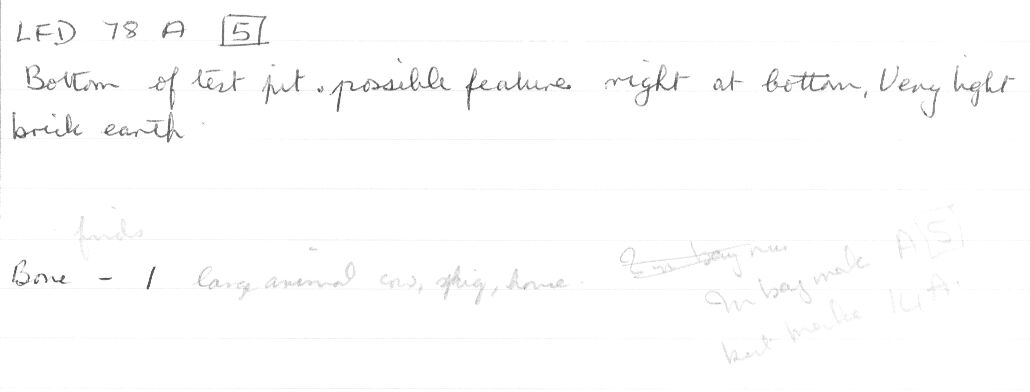 LFD 78 A 5
Bottom of test pit. possible feature right at bottom, Very light
brick earth
finds
Bone - 1 large animal cow, pig, horse.
In bag mark A 5
but marke 14 A.